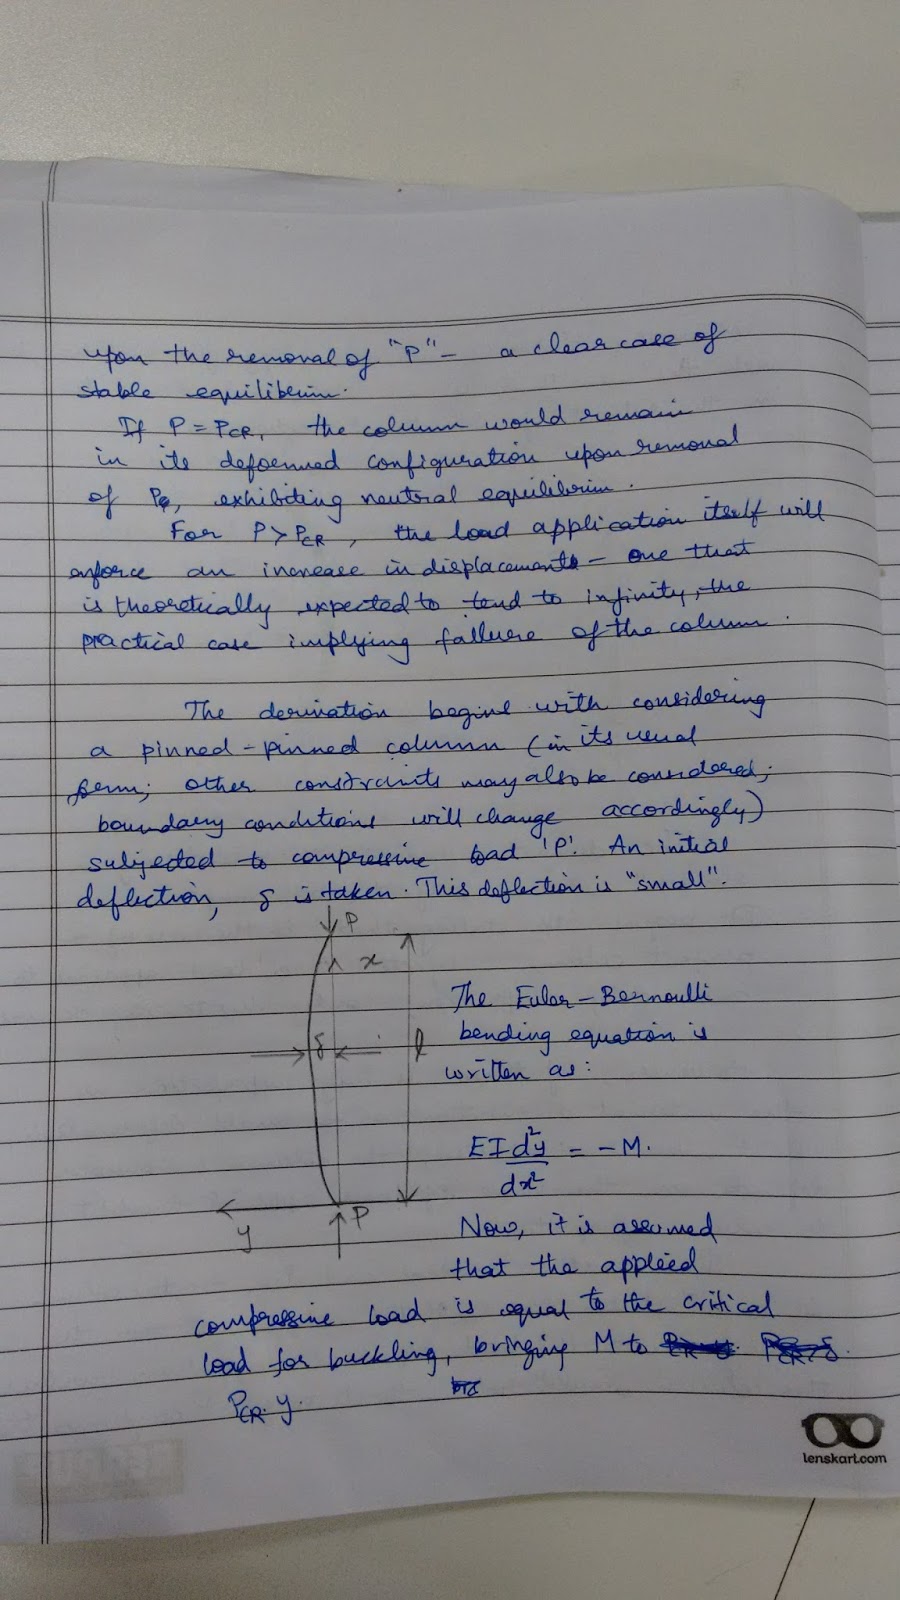 upon the removal of "P" - a clear case of
stable equilibrium.
If P = PCR, the column would remain
in its deformed configuration upon removal
of P, exhibiting neutral equilibrium.
For P > PCR, the load application itself will
enforce an increase in displacements - one that
is theoretically expected to tend to infinity, the
practical case implying failure of the column.
The derivation begins with considering
a pinned-pinned column (in its usual
form; other constraints may also be considered;
boundary conditions will change accordingly)
subjected to compressive load 'P'. An initial
deflection, δ is taken. This deflection is "small".
P
x
δ
l
The Euler-Bernoulli
bending equation is
written as:
EI d²y/dx² = -M.
P
y
Now, it is assumed
that the applied
compressive load is equal to the critical
load for buckling, bringing M to
PCR.y.
lenskart.com